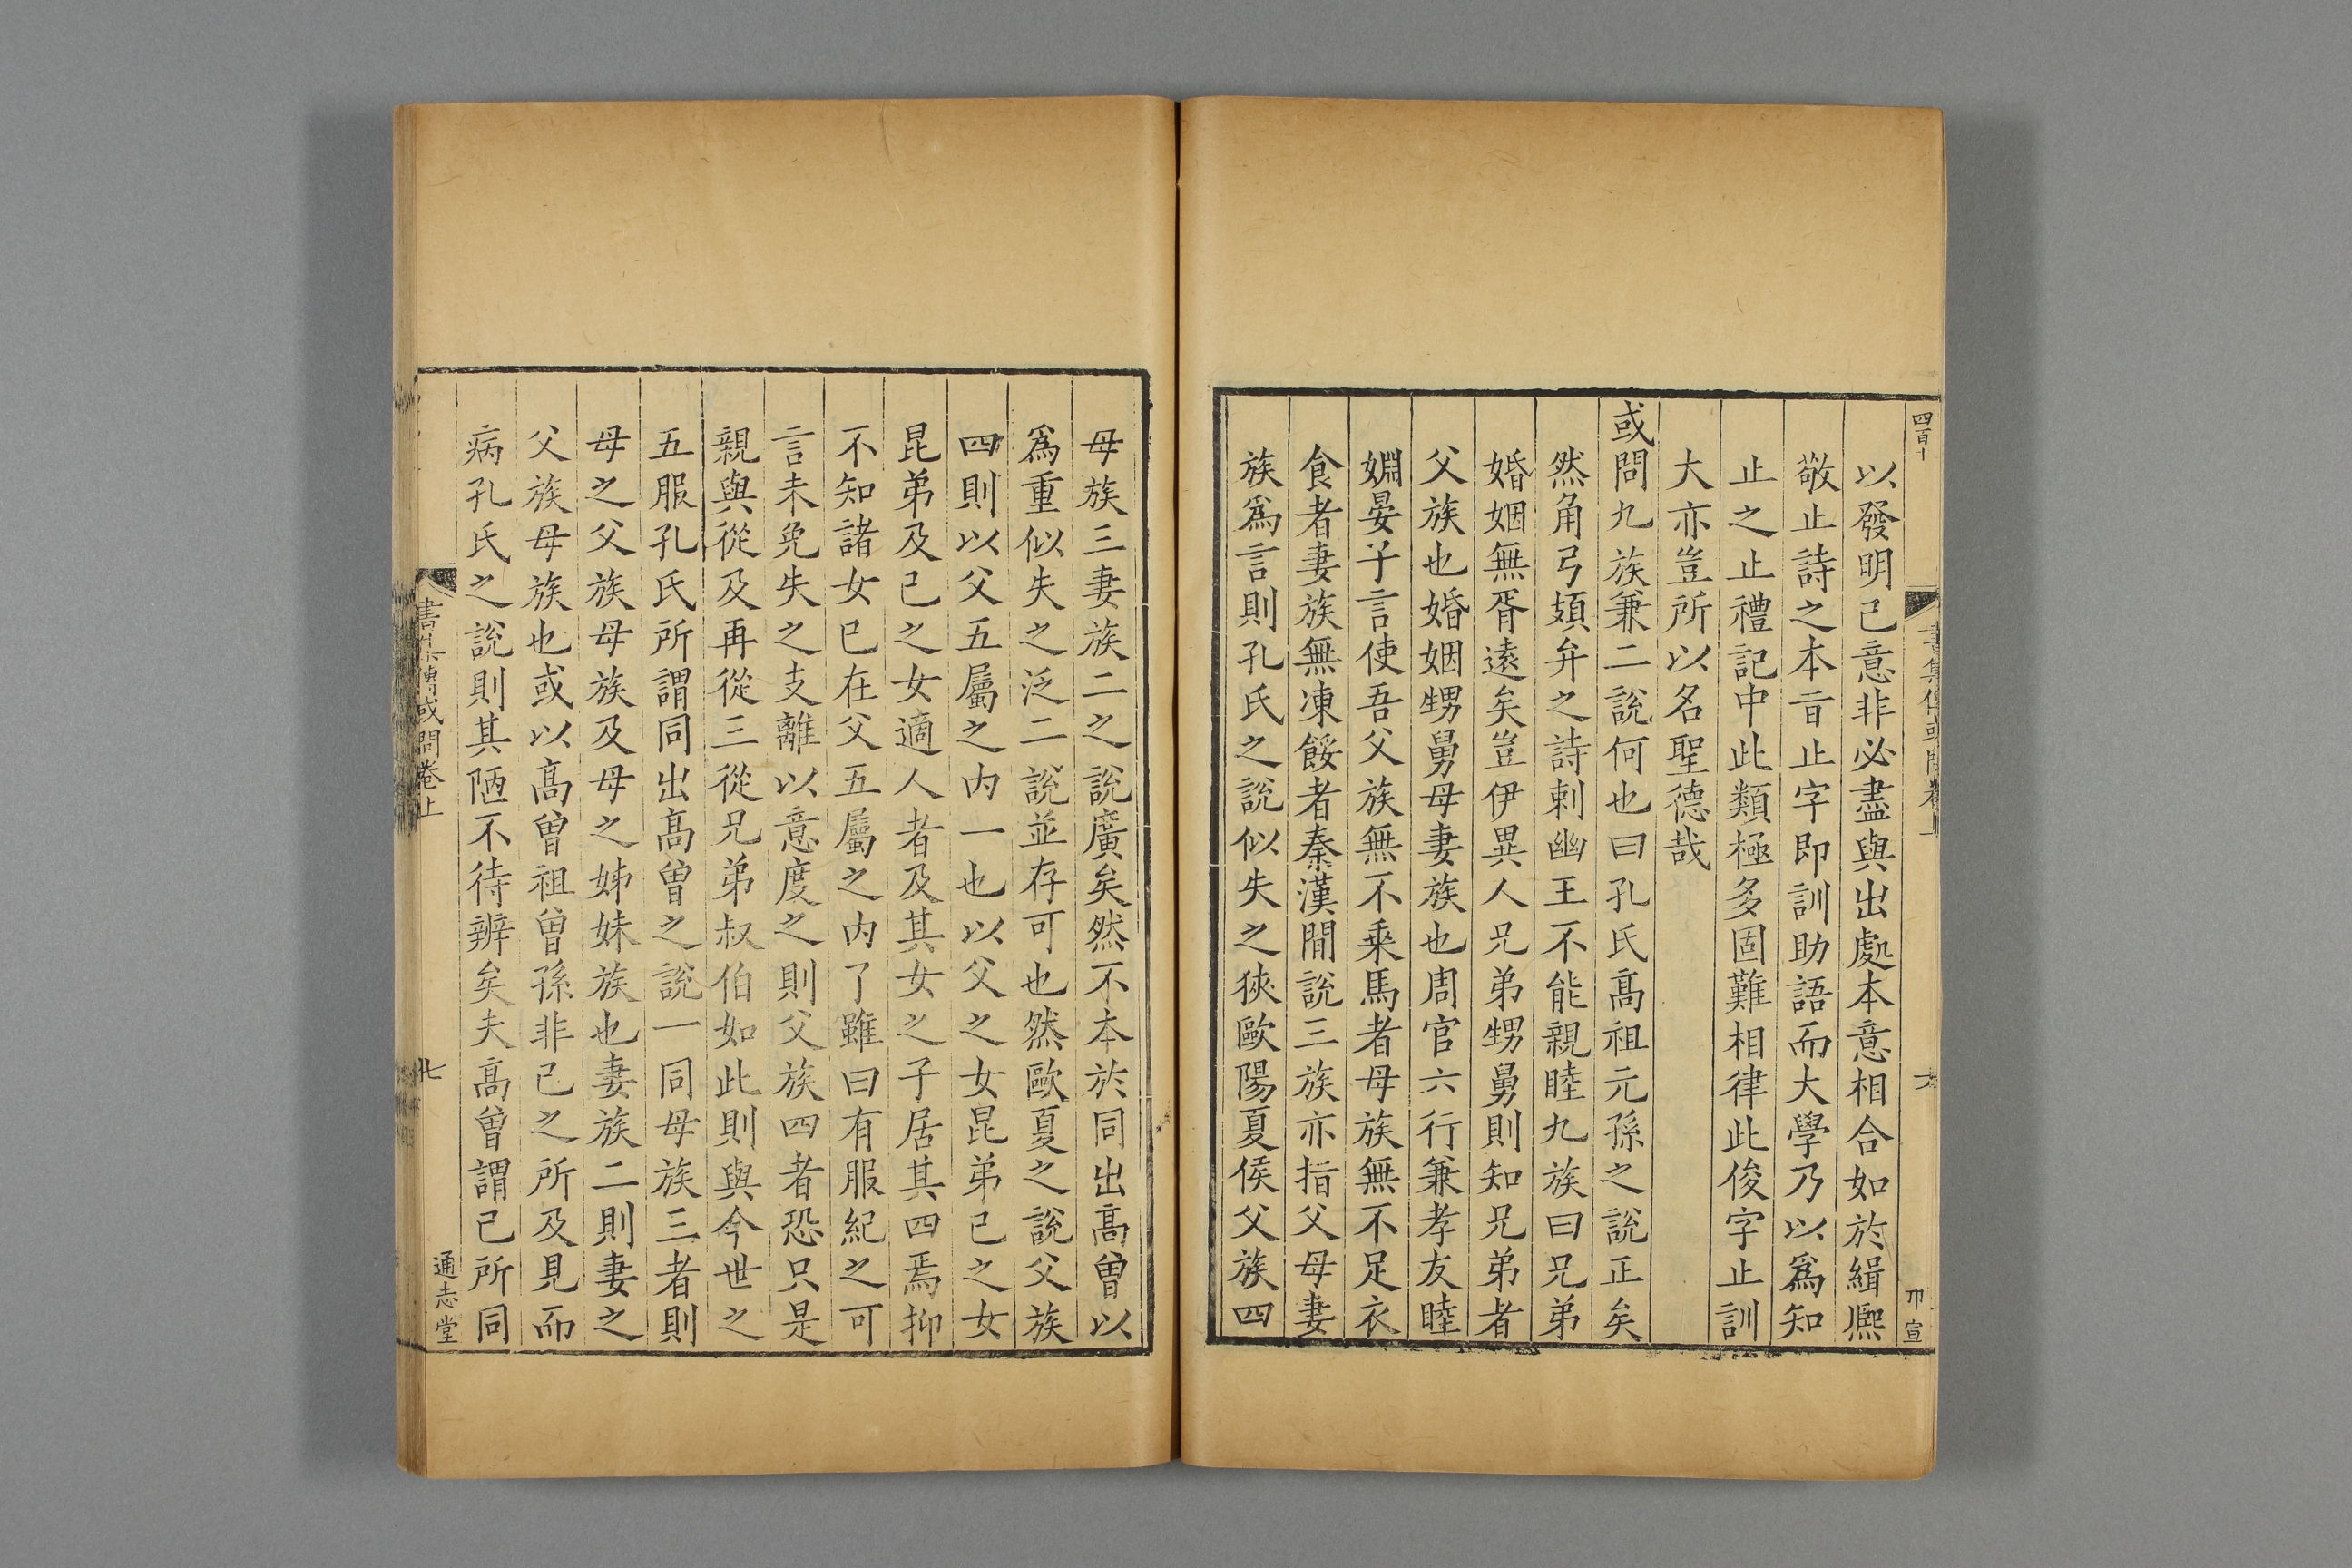 四百
書集傳或問卷上
六
宣
以發明己意非必盡與出處本意相合如於緝熈
敬止詩之本㫖止字即訓助語而大學乃以爲知
止之止禮記中此類極多固難相律此俊字止訓
大亦豈所以名聖德哉
或問九族兼二說何也曰孔氏髙祖元孫之說正矣
然角弓頍弁之詩刺幽王不能親睦九族曰兄弟
婚姻無胥遠矣豈伊異人兄弟甥舅則知兄弟者
父族也婚姻甥舅母妻族也周官六行兼孝友睦
婣晏子言使吾父族無不乗馬者母族無不足衣
食者妻族無凍餒者秦漢間說三族亦指父母妻
族爲言則孔氏之說似失之狹歐陽夏侯父族四
母族三妻族二之說廣矣然不本於同出髙曾以
爲重似失之泛二說並存可也然歐夏之說父族
四則以父五屬之内一也以父之女昆弟己之女
昆弟及己之女適人者及其女之子居其四焉抑
不知諸女已在父五屬之内了雖曰有服紀之可
言未免失之支離以意度之則父族四者恐只是
親與從及再從三從兄弟叔伯如此則與今世之
五服孔氏所謂同出髙曾之說一同母族三者則
母之父族母族及母之姊妹族也妻族二則妻之
父族母族也或以髙曾祖曾孫非己之所及見而
病孔氏之說則其陋不待辨矣夫髙曾謂己所同
書集傳或問卷上
七
通志堂